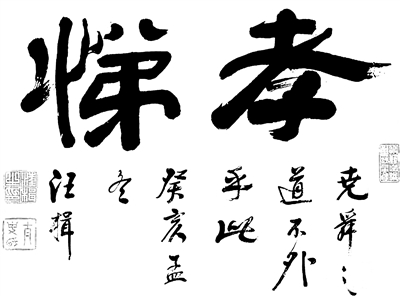 孝悌
堯舜之
道不外
乎此
癸亥孟
冬
汪輯